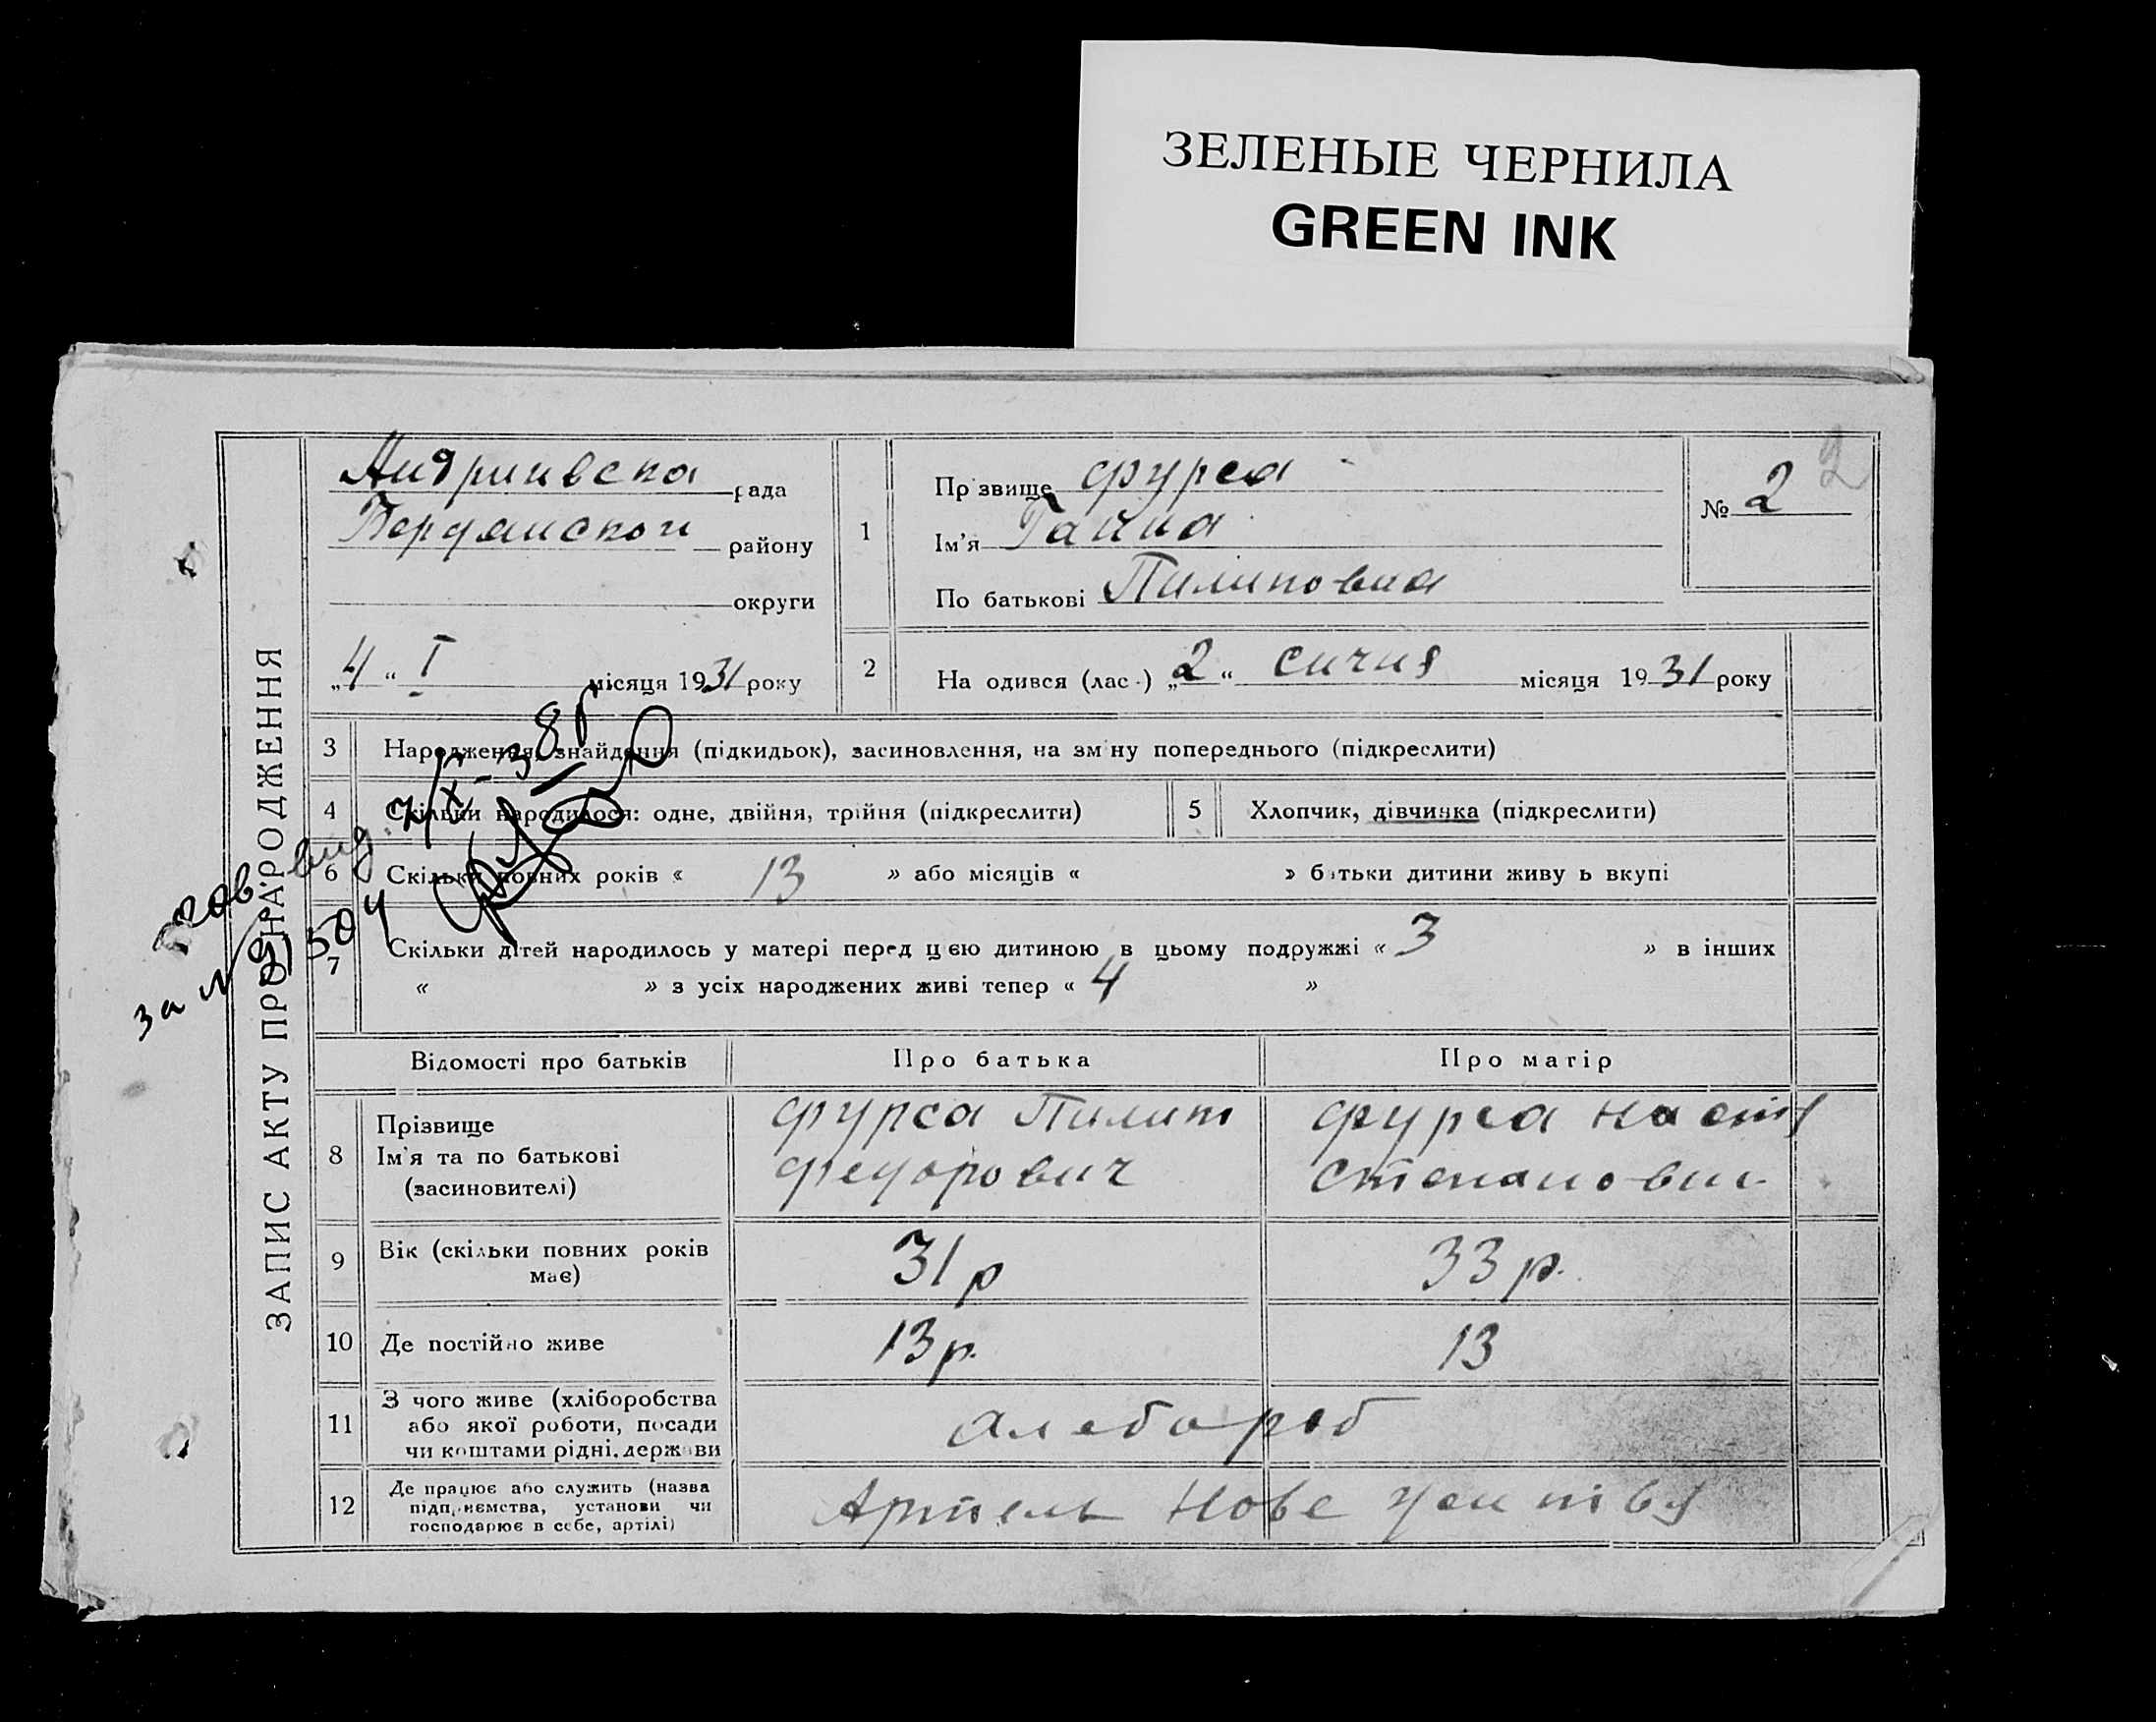 ЗЕЛЕНЫЕ ЧЕРНИЛА
GREEN INK
ЗАПИС АКТУ ПРО НАРОДЖЕННЯ
Андриивска рада
Бердянскои району
округи
„4“ I місяця 1931 року
1
Прізвище Фурса
Ім'я Ганна
По батькові Пилиповна
№ 2
2
2
На одився (лас.) „2“ сичня місяця 1931 року
3
Народження, знайдення (підкидьок), засиновлення, на зміну попереднього (підкреслити)
4
Скільки народилося: одне, двійня, трійня (підкреслити)
5
Хлопчик, дівчинка (підкреслити)
6
Скільки повних років « 13 » або місяців « » батьки дитини живуть вкупі
7
Скільки дітей народилось у матері перед цією дитиною в цьому подружжі « 3 » в інших
« » з усіх народжених живі тепер « 4 »
пов. вид. 7/X-38р
за №
Відомості про батьків
Про батька
Про матір
8
Прізвище
Ім'я та по батькові
(засиновителі)
Фурса Пилип
Федорович
Фурса Настя
Степановн.
9
Вік (скільки повних років
має)
31р
33р.
10
Де постійно живе
13р.
13
11
З чого живе (хліборобства
або якої роботи, посади
чи коштами рідні, держави
хлебороб
12
Де працює або служить (назва
підприємства, установи чи
господарює в себе, артілі)
Артель Нове